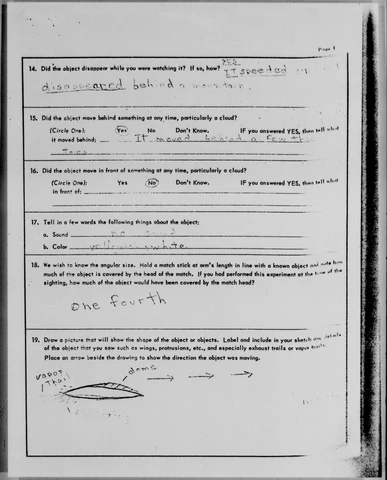 Page 4
14. Did the object disappear while you were watching it? If so, how? YES
IT speeded
disappeared behind a mountain.
15. Did the object move behind something at any time, particularly a cloud?
(Circle One): Yes No Don't Know. IF you answered YES, then tell what
it moved behind: It moved behind a few th
16. Did the object move in front of something at any time, particularly a cloud?
(Circle One): Yes No Don't Know. IF you answered YES, then tell what
in front of:
17. Tell in a few words the following things about the object:
a. Sound no sound
b. Color yellowish white
18. We wish to know the angular size. Hold a match stick at arm's length in line with a known object and note how
much of the object is covered by the head of the match. If you had performed this experiment at the time of the
sighting, how much of the object would have been covered by the match head?
one fourth
19. Draw a picture that will show the shape of the object or objects. Label and include in your sketch any details
of the object that you saw such as wings, protrusions, etc., and especially exhaust trails or vapor trails.
Place an arrow beside the drawing to show the direction the object was moving.
vapor
Trail
dome